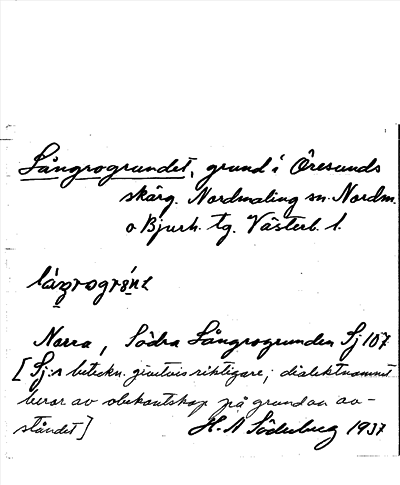 Långrogrundet, grund i Öresunds
skärg. Nordmaling sn. Nordm.
o Bjurh. tg. Västerb. l.
Norra, Södra Långrogrunden Sj 107
[Sj:s beteckn. givetvis riktigare; dialektnamnet
beror av obekantskap på grund av av-
ståndet] H. A Söderberg 1937